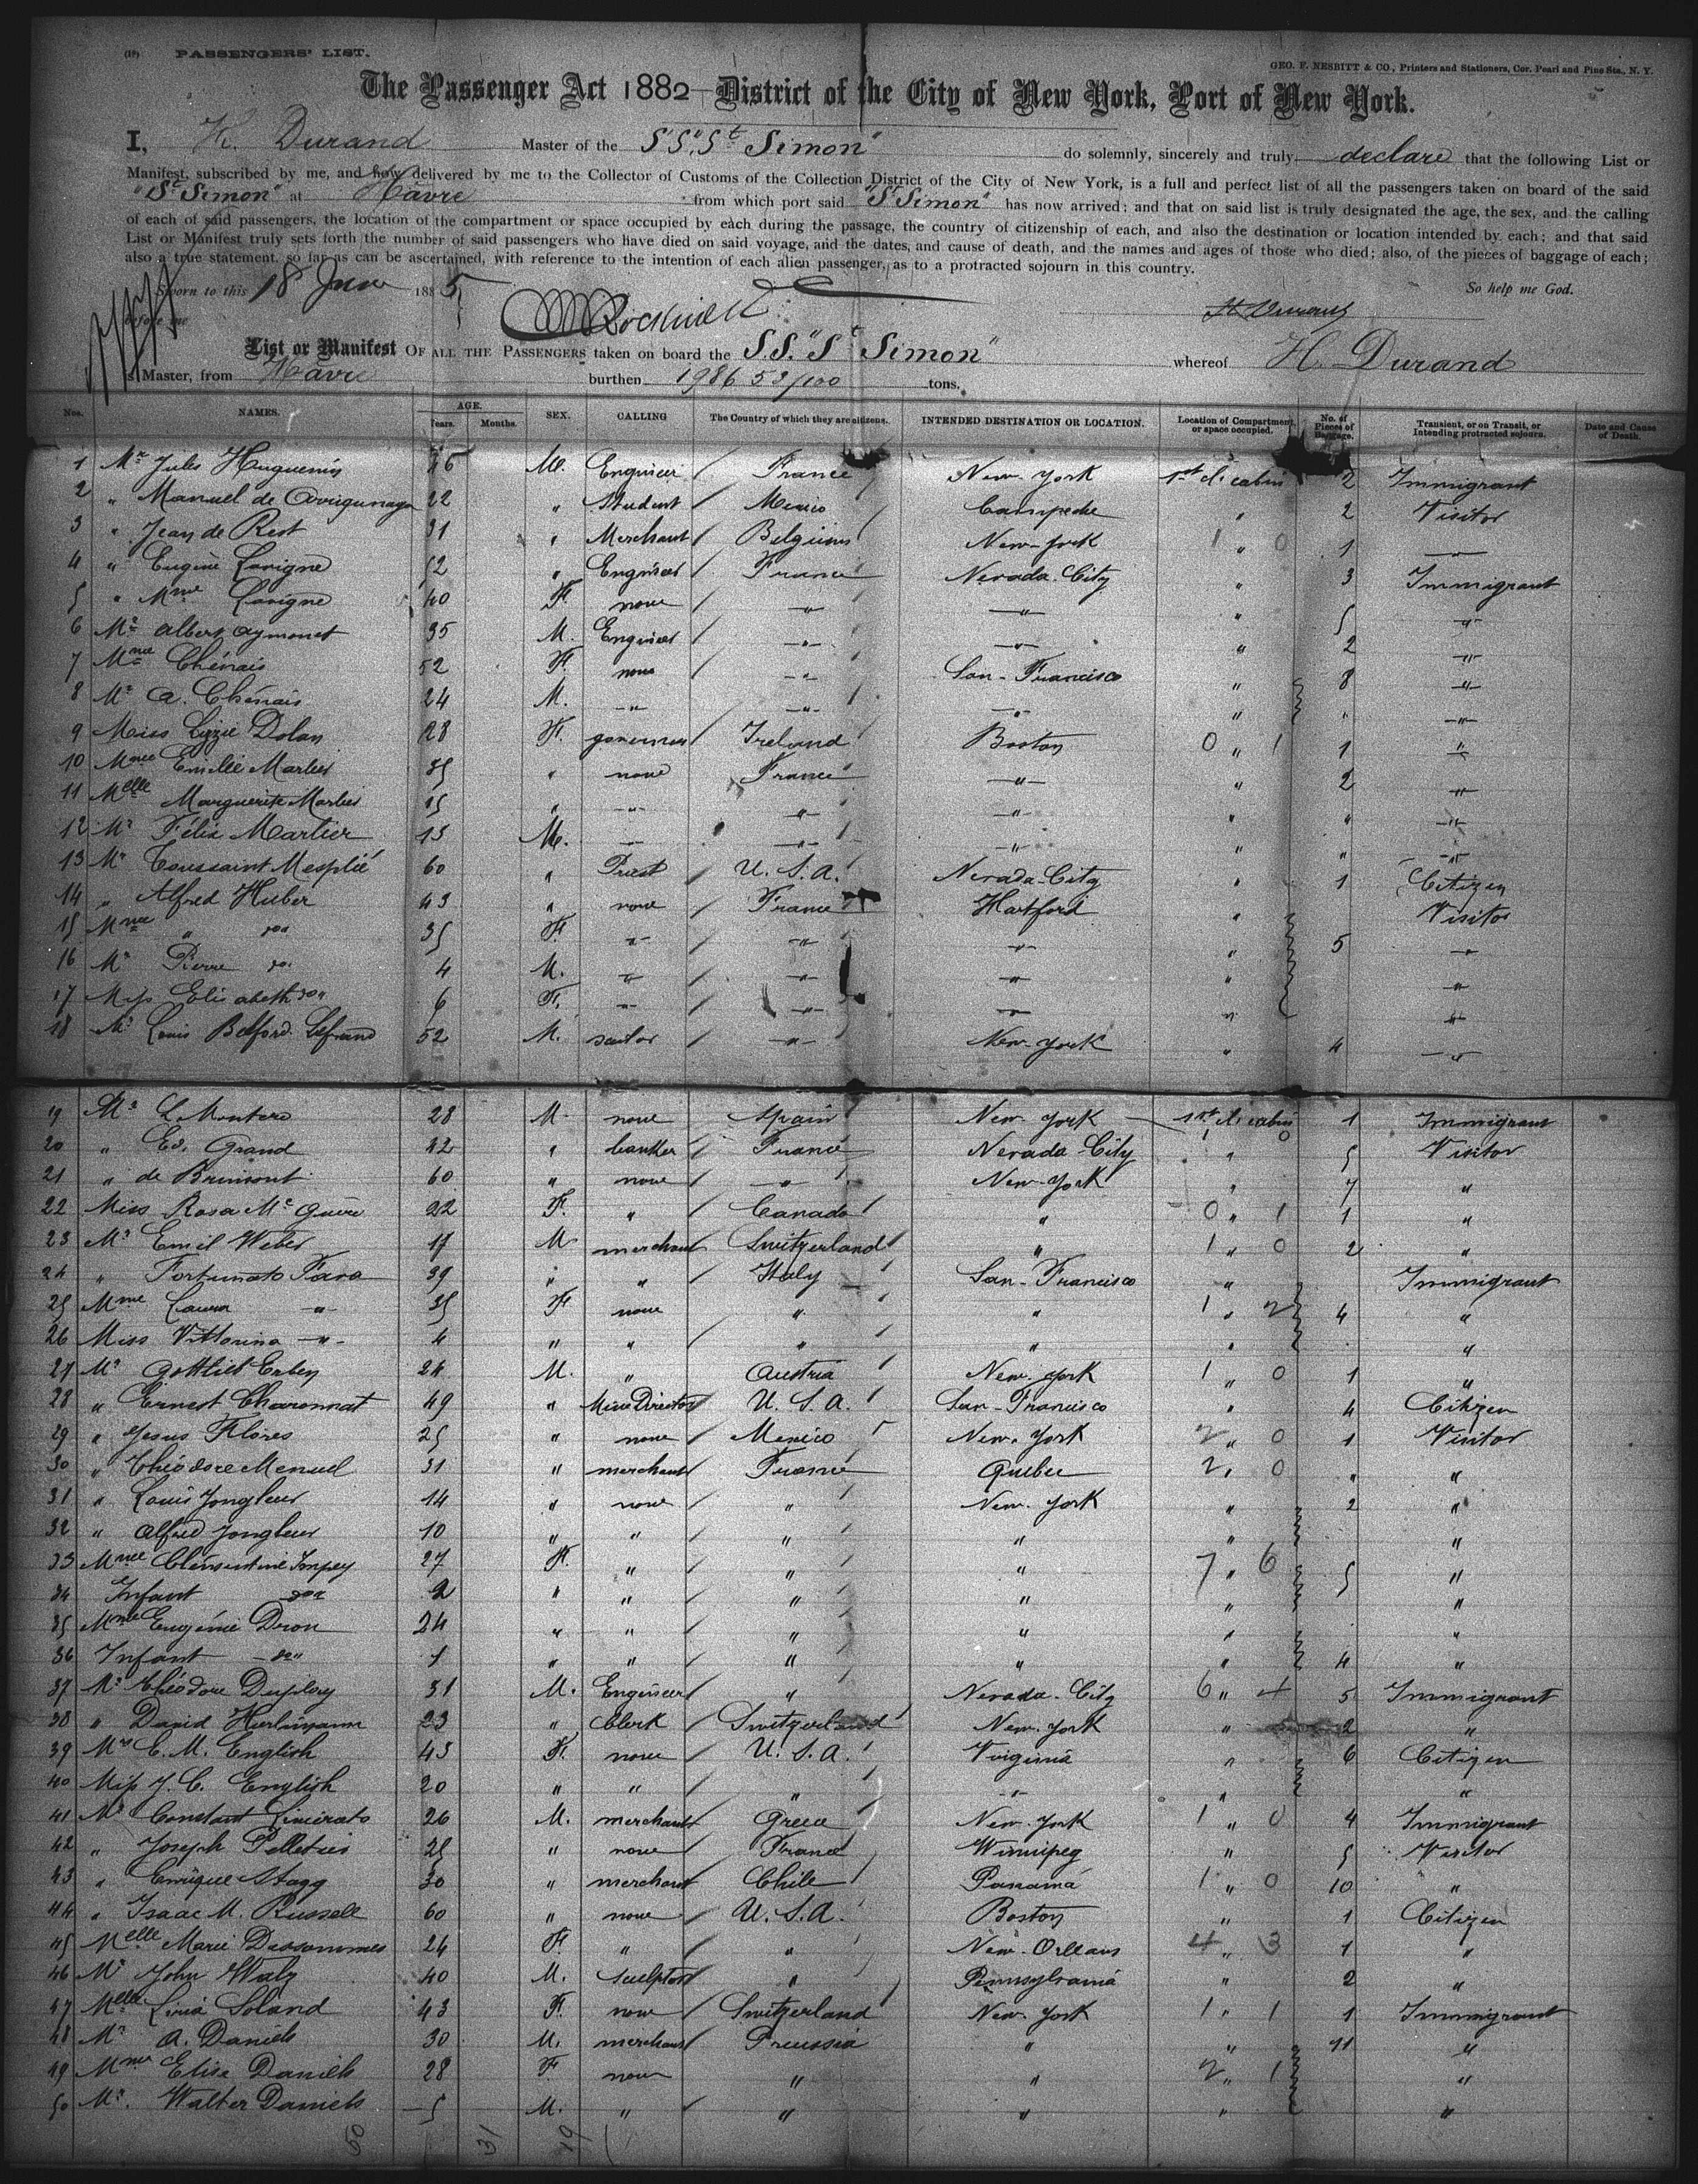 (18) PASSENGERS' LIST.
GEO. F. NESBITT & CO., Printers and Stationers, Cor. Pearl and Pine Sts., N. Y.
The Passenger Act 1882 District of the City of New York, Port of New York.
I, H. Durand Master of the S.S. "St Simon" do solemnly, sincerely and truly declare that the following List or
Manifest, subscribed by me, and now delivered by me to the Collector of Customs of the Collection District of the City of New York, is a full and perfect list of all the passengers taken on board of the said
"St Simon" at Havre from which port said "St Simon" has now arrived; and that on said list is truly designated the age, the sex, and the calling
of each of said passengers, the location of the compartment or space occupied by each during the passage, the country of citizenship of each, and also the destination or location intended by each; and that said
List or Manifest truly sets forth the number of said passengers who have died on said voyage, and the dates, and cause of death, and the names and ages of those who died; also, of the pieces of baggage of each;
also a true statement, so far as can be ascertained, with reference to the intention of each alien passenger, as to a protracted sojourn in this country.
Sworn to this 18 June 1885 So help me God.
before me Rockwell H Durand
List or Manifest OF ALL THE PASSENGERS taken on board the S.S. "St Simon" whereof H. Durand
is Master, from Havre burthen 1986 53/100 tons.
Nos. NAMES. AGE. Years. Months. SEX. CALLING The Country of which they are citizens. INTENDED DESTINATION OR LOCATION. Location of Compartment or space occupied. No. of Pieces of Baggage. Transient, or on Transit, or Intending protracted sojourn. Date and Cause of Death.
1 Mr Jules Huguenin M. Engineer France New-York 1st cl. cabin 2 Immigrant
2 " Manuel de 22 " Student Mexico Campeche " 2 Visitor
3 " Jean de Rest 31 " Merchant Belgium New-York 1 " 0 1 —
4 " Eugène Lavigne 52 " Engineer France Nevada City " 3 Immigrant
5 " Mme Lavigne 40 F. none —"— —"— " 5 —"—
6 Mr Albert Aymonet 35 M. Engineer —"— —"— " 2 —"—
7 Mme Chénais 52 F. none —"— San-Francisco " 8 —"—
8 Mr A. Chénais 24 M. —"— —"— —"— " " —"—
9 Miss Lizzie Dolan 28 F. governess Ireland Boston 0 " 1 1 —"—
10 Mme Emilie Martier 35 " none France —"— " 2 —"—
11 Melle Marguerite Martier 15 " —"— —"— —"— " " —"—
12 Mr Félix Martier 13 M. —"— —"— —"— " " —"—
13 Mr Toussaint Mesplié 60 " Priest U.S.A. Nevada-City " 1 Citizen
14 " Alfred Huber 43 " none France Hartford " Visitor
15 Mme " do 35 F. —"— —"— —"— " 5 —"—
16 Mr Pierre do 4 M. —"— —"— —"— " —"—
17 Miss Elisabeth do 6 F. —"— —"— —"— " —"—
18 Mr Louis Belford 52 M. —"— New-York " 4 —"—
19 Mr L. Montero 28 M. none Spain New-York 1st cl. cabin 1 Immigrant
20 " Ed. Grand 42 " banker France Nevada-City 1 " 0 5 Visitor
21 " de Brimont 60 " none —"— New-York " 7 "
22 Miss Rosa Mc 22 F. " Canada " 0 " 1 1 "
23 Mr Emil Weber 17 M merchant Switzerland " 1 " 0 2 "
24 " Fortunato Fava 39 " " Italy San-Francisco " Immigrant
25 Mme Laura —"— 35 F none " " 1 " 2 4 "
26 Miss Vittorina —"— 4 " " " " " "
27 Mr Gottlieb Erben 24 M. " Austria New-York 1 " 0 1 "
28 " Ernest Charonnat 49 " Mine Director U.S.A. San-Francisco " 4 Citizen
29 " Jesus Flores 25 " none Mexico New-York 2 " 0 1 Visitor
30 " Théodore Menuel 31 " merchant France Quebec 2 " 0 " "
31 " Louis Jongleur 14 " none " New-York " 2 "
32 " Alfred Jongleur 10 " " " " " "
33 Mme Clémentine 27 F. " " " 7 " 6 5 "
34 Infant do 2 " " " " " "
35 Mme Eugénie Dron 24 " " " " " "
36 Infant —do— 1 " " " " " 4 "
37 Mr Théodore Duploy 31 M. Engineer " Nevada-City 6 " 4 5 Immigrant
38 " David Hurlimann 23 " Clerk Switzerland New-York " 2 "
39 Mrs C. M. English 43 F. none U.S.A. Virginia " 6 Citizen
40 Miss J. C. English 20 " " " —"— " "
41 Mr Constant 26 M. merchant Greece New-York 1 " 0 4 Immigrant
42 " Joseph Pelletier 25 " none France Winnipeg " 5 Visitor
43 " Enrique Stagg 30 " merchant Chile Panama 1 " 0 10 "
44 " Isaac M. Russell 60 " none U.S.A. Boston " 1 Citizen
45 Melle Marie Dessommes 24 F. " " New-Orleans 4 " 3 1 "
46 Mr John Walz 40 M. Sculptor " Pennsylvania " 2 "
47 Melle Livia Soland 43 F. none Switzerland New York 1 " 1 1 Immigrant
48 Mr A. Daniels 30 M. merchant Preussia " " 11 "
49 Mme Elise Daniels 28 F. none " " 2 " 1 "
50 Mr. Walter Daniels 5 M. " " " " "
50 31 19